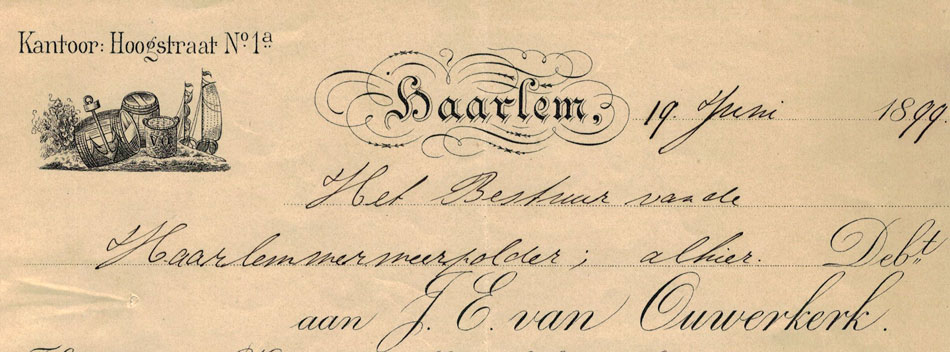 Kantoor: Hoogstraat No. 1a
Haarlem, 19 Juni 1899.
Het Bestuur van de
Haarlemmermeerpolder; alhier. Debt
aan J. E. van Ouwerkerk.